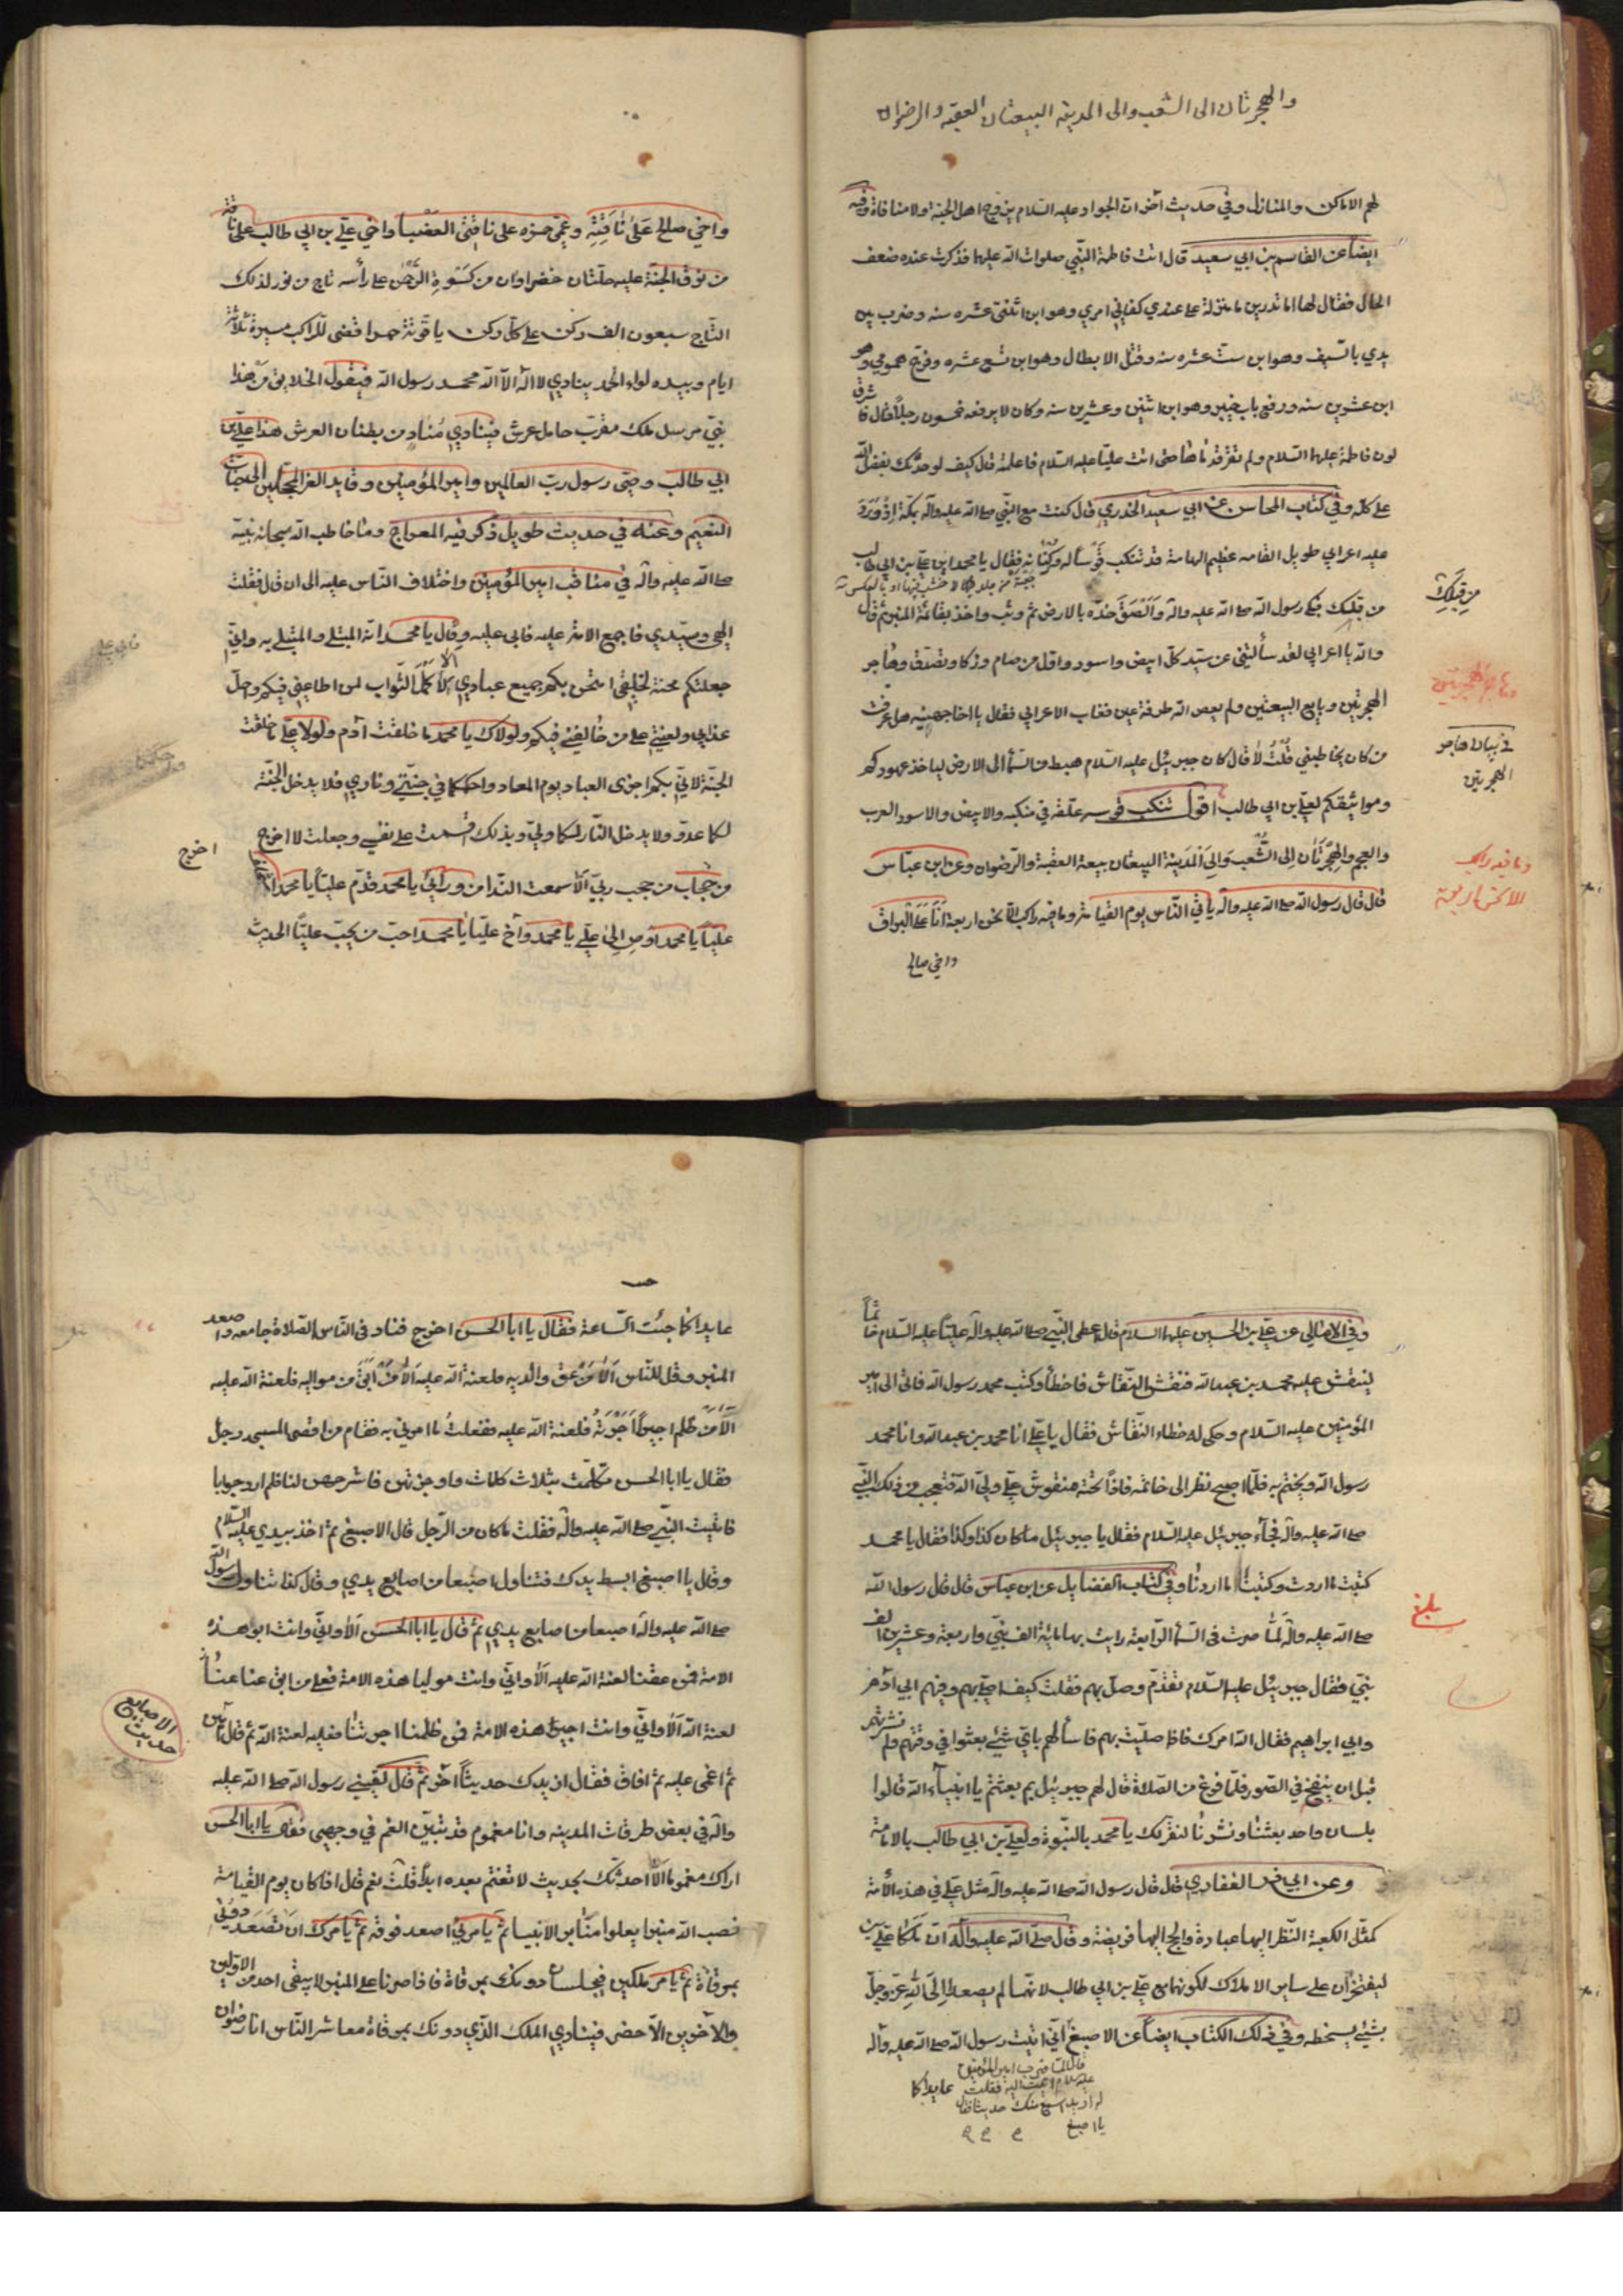 والهجرتان الى الشعب والى المدينه البيعتان العقبه والرضوان
لهم الاماكن والمنازل وفي حديث آخر ان الجواد عليه السلام يزوج اهل الجنة ولا منافاة وفيه
ايضاً عن القاسم بن ابي سعيد قال اتت فاطمة النبي صلوات الله عليها فذكرت عنده ضعف
الحال فقال لها اما تدرين ما منزلة علي عندي كفاني امري وهو ابن اثنتي عشره سنه وضرب بين
يدي بالسيف وهو ابن ست عشره سنه وقتل الابطال وهو ابن تسع عشره وفرج همومي وهو
ابن عشرين سنه ورفع باب خيبر وهو ابن اثنين وعشرين سنه وكان لا يرفعه خمسون رجلاً قال فاشرق
لون فاطمة عليها السلام ولم تقر قدماها حتى اتت علياً عليه السلام فاعلمته قال كيف لو حدثك بفضل الله
علي كله وفي كتاب المحاسن عن ابي سعيد الخدري قال كنت مع النبي صلى الله عليه وآله بمكة اذ ورد
عليه اعرابي طويل القامه عظيم الهامة قد تنكب قوساً له وكنانه فقال يا محمد اين علي بن ابي طالب
من قلبك فبكى رسول الله صلى الله عليه وآله والصق خده بالارض ثم وثب واخذ بقائمة المنبر ثم قال
من قبلك
والله يا اعرابي لقد سألتني عن سيد كل ابيض واسود واول من صام وزكا وتصدق وهاجر
الهجرتين وبايع البيعتين ولم يعص الله طرفة عين فغاب الاعرابي فقال يا اخا جهينه هل عرفت
من كان يخاطبني قلت لا قال كان جبرئيل عليه السلام هبط من السماء الى الارض لياخذ عهودكم
في بيان هاجر
الهجرتين
ومواثيقكم لعلي بن ابي طالب اقول تنكب قوسه علقه في منكبه والابيض والاسود العرب
والعجم والهجرتان الى الشعب والى المدينة البيعتان بيعة العقبة والرضوان وعن ابن عباس
قال قال رسول الله صلى الله عليه وآله يأتي الناس يوم القيامة وما فيه راكب الا نحن اربعة انا على البراق
واخي صالح
واخي صالح على ناقته وعمي حمزه على ناقتي العضباء واخي علي بن ابي طالب على ناقة
من نوق الجنة عليه حلتان خضراوان من كسوة الرحمن على رأسه تاج من نور لذلك
التاج سبعون الف ركن على كل ركن ياقوتة حمرا تضئ للراكب مسيرة ثلاثة
ايام وبيده لواء الحمد ينادي لا اله الا الله محمد رسول الله فيقول الخلايق من هذا
نبي مرسل ملك مقرب حامل عرش فينادي مناد من بطنان العرش هذا علي بن
ابي طالب وصي رسول رب العالمين وامير المؤمنين وقايد الغر المحجلين الى جنات
النعيم وعنه في حديث طويل ذكر فيه المعراج وما خاطب الله سبحانه نبيه
صلى الله عليه وآله في مناقب امير المؤمنين واختلاف الناس عليه الى ان قال فقلت
الهي وسيدي فاجمع الامة عليه فابى عليه وقال يا محمد انه المبتلى والمبتلى به واني
جعلتكم محنة لخلقي امتحن بكم جميع عبادي لاكمل الثواب لمن اطاعني فيكم واحل
عذابي ولعنتي على من خالفني فيكم ولولاك يا محمد ما خلقت آدم ولولا علي ما خلقت
الجنة لاني بكم اجزى العباد يوم المعاد واحكمكما في جنتي وناري فلا يدخل الجنة
لكما عدو ولا يدخل النار لكما ولي وبذلك اقسمت على نفسي وجعلت لا اخرج
اخرج
من حجاب من حجب ربي الا سمعت الندا من ورائي يا محمد قدم علياً يا محمد استخلف
علياً يا محمد اوص الى علي يا محمد وآخ علياً يا محمد احب من يحب علياً الحديث
وفي الامالي عن علي بن الحسين عليهما السلام قال اعطى النبي صلى الله عليه وآله علياً عليه السلام خاتماً
لينقش عليه محمد بن عبدالله فنقش النقاش فاخطأ وكتب محمد رسول الله فاتى الى امير
المؤمنين عليه السلام وحكى له خطاء النقاش فقال يا علي انا محمد بن عبدالله وانا محمد
رسول الله ويختم به فلما اصبح نظر الى خاتمه فاذا تحته منقوش علي ولي الله فتعجب من ذلك النبي
صلى الله عليه وآله فجاء جبرئيل عليه السلام فقال يا جبرئيل ما كان كذا وكذا فقال يا محمد
كتبت ما اردت وكتبنا ما اردنا وفي كتاب الفضايل عن ابن عباس قال قال رسول الله
صلى الله عليه وآله لما صرت في السماء الرابعة رايت بها مائة الف نبي واربعة وعشرين الف
بلغ
نبي فقال جبرئيل عليه السلام تقدم وصل بهم فقلت كيف اصلي بهم وفيهم ابي آدم
وابي ابراهيم فقال الله امرك فاذا صليت بهم فاسألهم باي شيئ بعثوا في وقتهم ولم نشرتهم
قبل ان ينفخ في الصور فلما فرغ من الصلاة قال لهم جبرئيل بم بعثتم يا انبياء الله قالوا
بلسان واحد بعثنا ونشرنا لنقر لك يا محمد بالنبوة ولعلي بن ابي طالب بالامامة
وعن ابي ذر الغفاري قال قال رسول الله صلى الله عليه وآله مثل علي في هذه الأمة
كمثل الكعبة النظر اليها عبادة والحج اليها فريضة وقال صلى الله عليه وآله ان ملكا علي بن
ليفتخران على ساير الاملاك لكونهما مع علي بن ابي طالب لانهما لم يصعدا الى الله عز وجل
بشيئ يسخطه وفي ذلك الكتاب ايضاً عن الاصبغ اني اتيت رسول الله صلى الله عليه وآله
قال لما ضرب امير المؤمنين
عايدا كما
له اريد اسمع منك حديثا فقال
يا اصبغ
عايدا كما جئت الساعة فقال يا ابا الحسن اخرج فناد في الناس الصلاة جامعه واصعد
المنبر وقل للناس الا من عق والديه فلعنة الله عليه الا من ابق من مواليه فلعنة الله عليه
الا من ظلم اجيراً اجرته فلعنة الله عليه ففعلت ما امرني به فقام من اقصى المسجد رجل
فقال يا ابا الحسن تكلمت بثلاث كلمات واوجزتهن فاشرحهن لنا فلم ارد جوابا
فاتيت النبي صلى الله عليه وآله فقلت ما كان من الرجل قال الاصبغ ثم اخذ بيدي عليه السلام
وقال يا اصبغ ابسط يدك فتناول اصبعا من اصابع يدي وقال كذا تناول رسول الله
صلى الله عليه وآله اصبعا من اصابع يدي ثم قال يا ابا الحسن الا واني وانت ابو هذه
الامة فمن عقنا لعنة الله عليه الا واني وانت موليا هذه الامة فعلى من ابق عنا
لعنة الله الا واني وانت اجيرا هذه الامة فمن ظلمنا اجرتنا فعليه لعنة الله ثم قال آمين
الاصابع
حديث
ثم اغمى عليه ثم افاق فقال ازيدك حديثاً آخر ثم قال لقيني رسول الله صلى الله عليه
وآله في بعض طرقات المدينه وانا مغموم قد تبين الغم في وجهي فقال يا ابا الحسن
اراك مغموما الا احدثك بحديث لا تغتم بعده ابداً قلت نعم قال اذا كان يوم القيامة
نصب الله منبرا يعلوا منابر الانبياء ثم يأمرني اصعد فوقه ثم يامرك ان تصعد دوني
بمرقاة ثم يامر ملكين فيجلسان دونك بمرقاة فاذا صرنا على المنبر لا يبقى احد من الاولين
والآخرين الا حضر فينادي الملك الذي دونك بمرقاة معاشر الناس انا رضوان